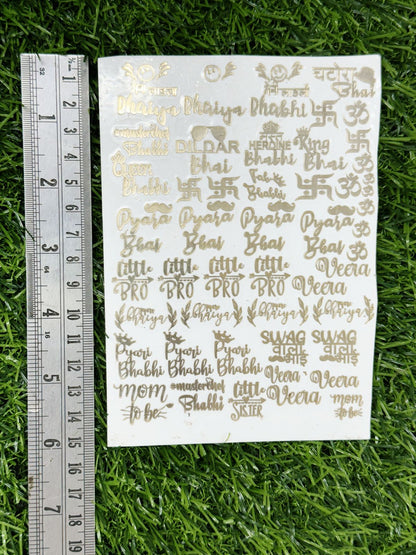 चटोरा
Dhaiya Dhaiya Dhabhi Bhai
masterchef DILDAR HEROINE King
Bhabhi Bhai Bhabhi Bhai
Queen
Bhabhi
Bhabhi
Pyara Pyara Pyara Pyara
Bhai Bhai Bhai Bhai
Little Little Little Little Veera
BRO BRO BRO BRO Veera
bhaiya bhaiya bhaiya bhaiya
Pyari Pyari Pyari SWAG SWAG
Bhabhi Bhabhi Bhabhi
Veera Veera
mom masterchef Little Veera Veera mom
to be Bhabhi SISTER to be
32
64
4
16
1 2 3 4 5 6 7
1 2 3 4 5 6 7 8 9 10 11 12 13 14 15 16 17 18 19